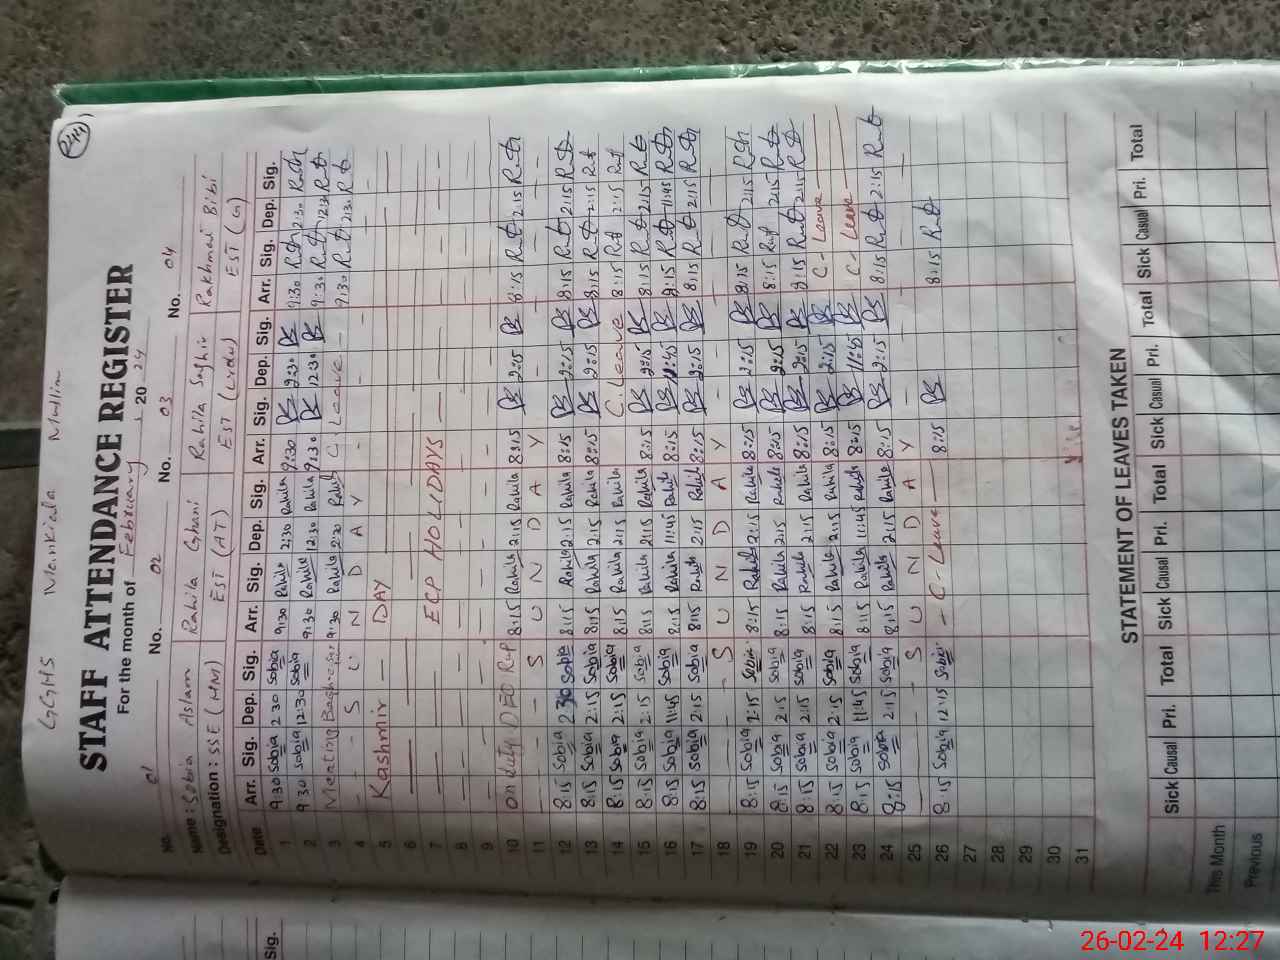 GGHS Mankiala Muslim
STAFF ATTENDANCE REGISTER
For the month of February 20 24
No. 01 No. 02 No. 03 No. 04
Name : Sobia Aslam Rahila Ghani Rahila Saghir Rakhmat Bibi
Designation : SSE (HM) EST (AT) EST (Urdu) EST (G)
Date Arr. Sig. Dep. Sig. Arr. Sig. Dep. Sig. Arr. Sig. Dep. Sig. Arr. Sig. Dep. Sig.
1 9:30 Sobia 2 30 Sobia 9:30 Rahila 2:30 Rahila 9:30 2:30 9:30 2:30
2 9 30 Sobia 12:30 Sobia 9:30 Rahila 12:30 Rahila 9:30 12:30 9:30 12:30
3 Meeting 9:30 Rahila 2:30 Rahila C- Leave 9:30 2:30
4 S U N D A Y
5 Kashmir DAY
6
7 ECP HOLIDAYS
8
9
10 on duty DEO RWP 8:15 Rahila 2:15 Rahila 8:15 2:15 8:15 2:15
11 S U N D A Y
12 8:15 Sobia 2 30 Sobia 8:15 Rahila 2:15 Rahila 8:15 2:15 8:15 2:15
13 8:15 Sobia 2:15 Sobia 8:15 Rahila 2:15 Rahila 8:15 2:15 8:15 2:15
14 8:15 Sobia 2:15 Sobia 8:15 Rahila 2:15 Rahila C. Leave 8:15 2:15
15 8:15 Sobia 2:15 Sobia 8:15 Rahila 2:15 Rahila 8:15 2:15 8:15 2:15
16 8:15 Sobia 11:45 Sobia 8:15 Rahila 11:45 Rahila 8:15 11:45 8:15 11:45
17 8:15 Sobia 2:15 Sobia 8:15 Rahila 2:15 Rahila 8:15 2:15 8:15 2:15
18 S U N D A Y
19 8:15 Sobia 2:15 Sobia 8:15 Rahila 2:15 Rahila 8:15 2:15 8:15 2:15
20 8:15 Sobia 2:15 Sobia 8:15 Rahila 2:15 Rahila 8:15 2:15 8:15 2:15
21 8:15 Sobia 2:15 Sobia 8:15 Rahila 2:15 Rahila 8:15 2:15 8:15 2:15
22 8:15 Sobia 2:15 Sobia 8:15 Rahila 2:15 Rahila 8:15 2:15 C- Leave
23 8:15 Sobia 11:45 Sobia 8:15 Rahila 11:45 Rahila 8:15 11:45 C- Leave
24 8:15 Sobia 2:15 Sobia 8:15 Rahila 2:15 Rahila 8:15 2:15 8:15 2:15
25 S U N D A Y
26 8:15 Sobia 12:15 Sobia C- Leave 8:15 8:15
27
28
29
30
31
STATEMENT OF LEAVES TAKEN
Sick Casual Pri. Total Sick Causal Pri. Total Sick Casual Pri. Total Sick Casual Pri. Total
This Month
Previous
Sig.
26-02-24 12:27